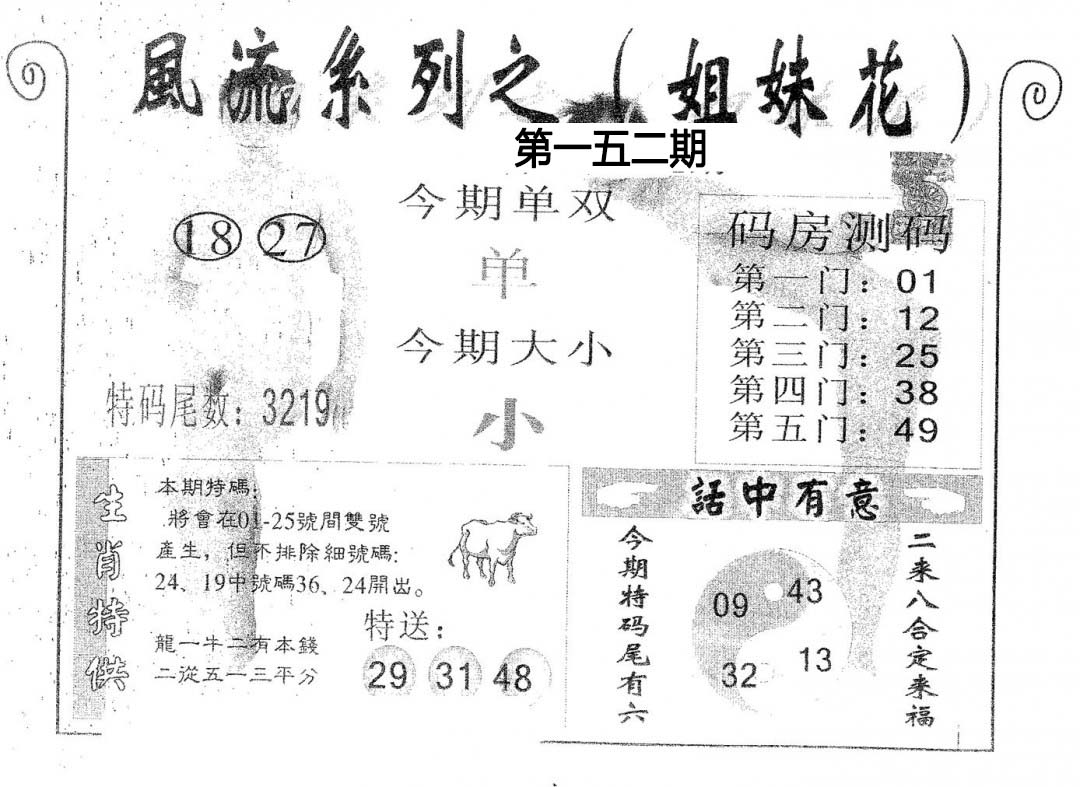 風流系列之(姐妹花)
第一五二期
18 27
今期单双
单
今期大小
小
特码尾数：3219
码房测码
第一门：01
第二门：12
第三门：25
第四门：38
第五门：49
生肖特供
本期特碼：
將會在01-25號間雙號
產生，但不排除細號碼:
24、19中號碼36、24開出。
龍一牛二有本錢
二從五一三平分
特送：
29 31 48
話中有意
今期特码尾有六
09 43
32 13
二来八合定来福